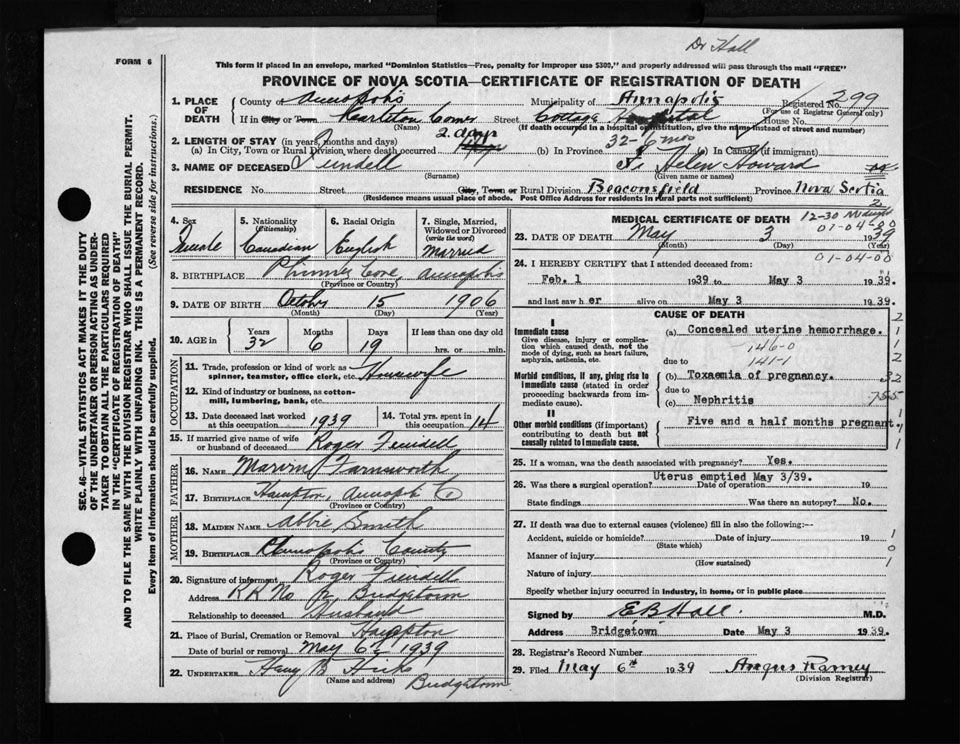 Dr Hall
FORM 6
This form if placed in an envelope, marked "Dominion Statistics—Free, penalty for improper use $300," and properly addressed will pass through the mail "FREE"
PROVINCE OF NOVA SCOTIA—CERTIFICATE OF REGISTRATION OF DEATH
SEC. 46—VITAL STATISTICS ACT MAKES IT THE DUTY
OF THE UNDERTAKER OR PERSON ACTING AS UNDER-
TAKER TO OBTAIN ALL THE PARTICULARS REQUIRED
IN THE "CERTIFICATE OF REGISTRATION OF DEATH"
AND TO FILE THE SAME WITH THE DIVISION REGISTRAR WHO SHALL ISSUE THE BURIAL PERMIT.
WRITE PLAINLY WITH UNFADING INK. THIS IS A PERMANENT RECORD.
Every item of information should be carefully supplied. (See reverse side for instructions.)
1. PLACE OF DEATH County of Annapolis Municipality of Annapolis Registered No. 299
(For use of Registrar General only)
If in City or Town Karleton Corner Street Cottage Hospital House No.
(Name) (If death occurred in a hospital or institution, give the name instead of street and number)
2. LENGTH OF STAY (in years, months and days) 2 days 32-6 mos
(a) In City, Town or Rural Division where death occurred (b) In Province (c) In Canada (if immigrant)
3. NAME OF DECEASED Helen Howard
(Surname) (Given name or names)
RESIDENCE No. Street City, Town or Rural Division Beaconsfield Province Nova Scotia
(Residence means usual place of abode. Post Office Address for residents in rural parts not sufficient)
4. Sex 5. Nationality (Citizenship) 6. Racial Origin 7. Single, Married, Widowed or Divorced (write the word)
Female Canadian English Married
8. BIRTHPLACE Phinney Cove Annapolis
(Province or Country)
9. DATE OF BIRTH October 15 1906
(Month) (Day) (Year)
10. AGE in Years Months Days If less than one day old
32 6 19 hrs. or min.
OCCUPATION
11. Trade, profession or kind of work as spinner, teamster, office clerk, etc. Housewife
12. Kind of industry or business, as cotton-mill, lumbering, bank, etc.
13. Date deceased last worked at this occupation 1939 14. Total yrs. spent in this occupation 14
15. If married give name of wife or husband of deceased Roger
FATHER
16. NAME Marvin Farnsworth
17. BIRTHPLACE Hampton, Annapolis Co
(Province or Country)
MOTHER
18. MAIDEN NAME Abbie Smith
19. BIRTHPLACE Annapolis County
(Province or Country)
20. Signature of informant Roger
Address RR No 2, Bridgetown
Relationship to deceased Husband
21. Place of Burial, Cremation or Removal Hampton
Date of burial or removal May 6th 1939
22. UNDERTAKER Harry B Hicks
(Name and address) Bridgetown
MEDICAL CERTIFICATE OF DEATH 12-30 Midnight
01-04-00
23. DATE OF DEATH May 3 1939
(Month) (Day) (Year)
24. I HEREBY CERTIFY that I attended deceased from: 01-04-00
Feb. 1 1939 to May 3 1939.
and last saw her alive on May 3 1939.
CAUSE OF DEATH
I
Immediate cause (a) Concealed uterine hemorrhage.
Give disease, injury or complication which caused death, not the mode of dying, such as heart failure, asphyxia, asthenia, etc.
146-0
due to 141-1
Morbid conditions, if any, giving rise to immediate cause (stated in order proceeding backwards from immediate cause).
(b) Toxaemia of pregnancy. 32
due to
(c) Nephritis
II
Other morbid conditions (if important) contributing to death but not causally related to immediate cause. Five and a half months pregnant.
25. If a woman, was the death associated with pregnancy? Yes.
Uterus emptied May 3/39.
26. Was there a surgical operation? Date of operation 19
State findings Was there an autopsy? No.
27. If death was due to external causes (violence) fill in also the following:—
Accident, suicide or homicide? Date of injury 19
(State which)
Manner of injury
(How sustained)
Nature of injury
Specify whether injury occurred in industry, in home, or in public place
Signed by E B Hall. M.D.
Address Bridgetown Date May 3 1939.
28. Registrar's Record Number
29. Filed May 6th 1939 Angus Ramey
(Division Registrar)